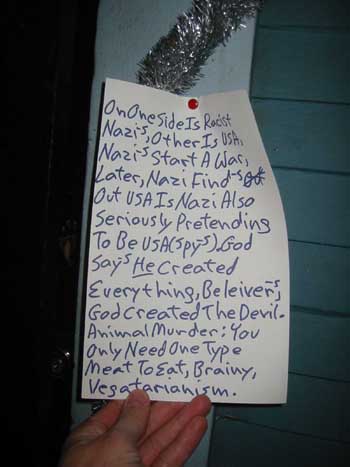 On One Side Is Racist
Nazi-s, Other Is USA,
Nazi-s Start A War,
Later, Nazi Find-s
Out USA Is Nazi Also
Seriously Pretending
To Be USA(Spy-s). God
Say-s He Created
Everything, Beleiver-s,
God Created The Devil.
Animal Murder: You
Only Need One Type
Meat To Eat, Brainy,
Vegatarianism.